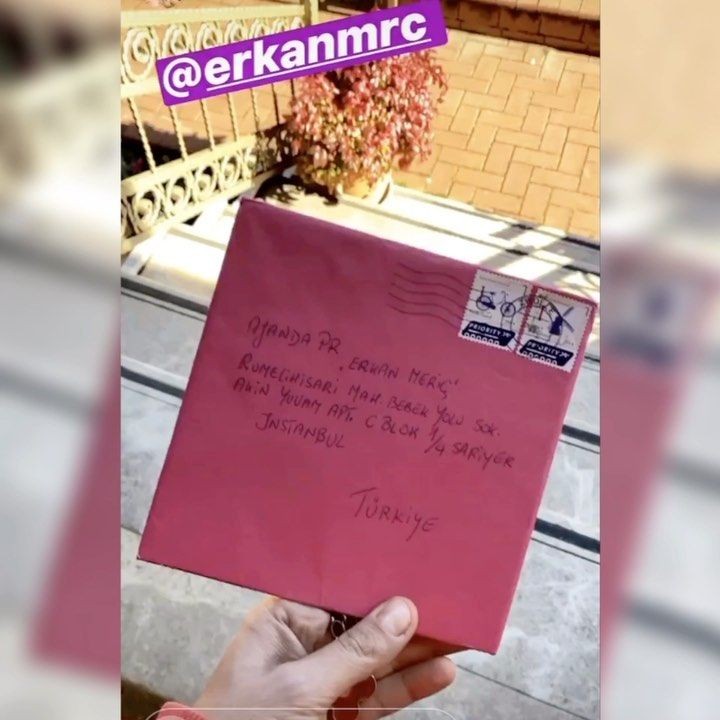 @erkanmrc
PRIORITY
PRIORITY
AJANDA PR
"ERKAN MERİÇ"
RUMELİHİSARI MAH. BEBEK YOLU SOK.
AKIN YUVAM APT. C BLOK 1/4 SARIYER
INSTANBUL
TÜRKİYE